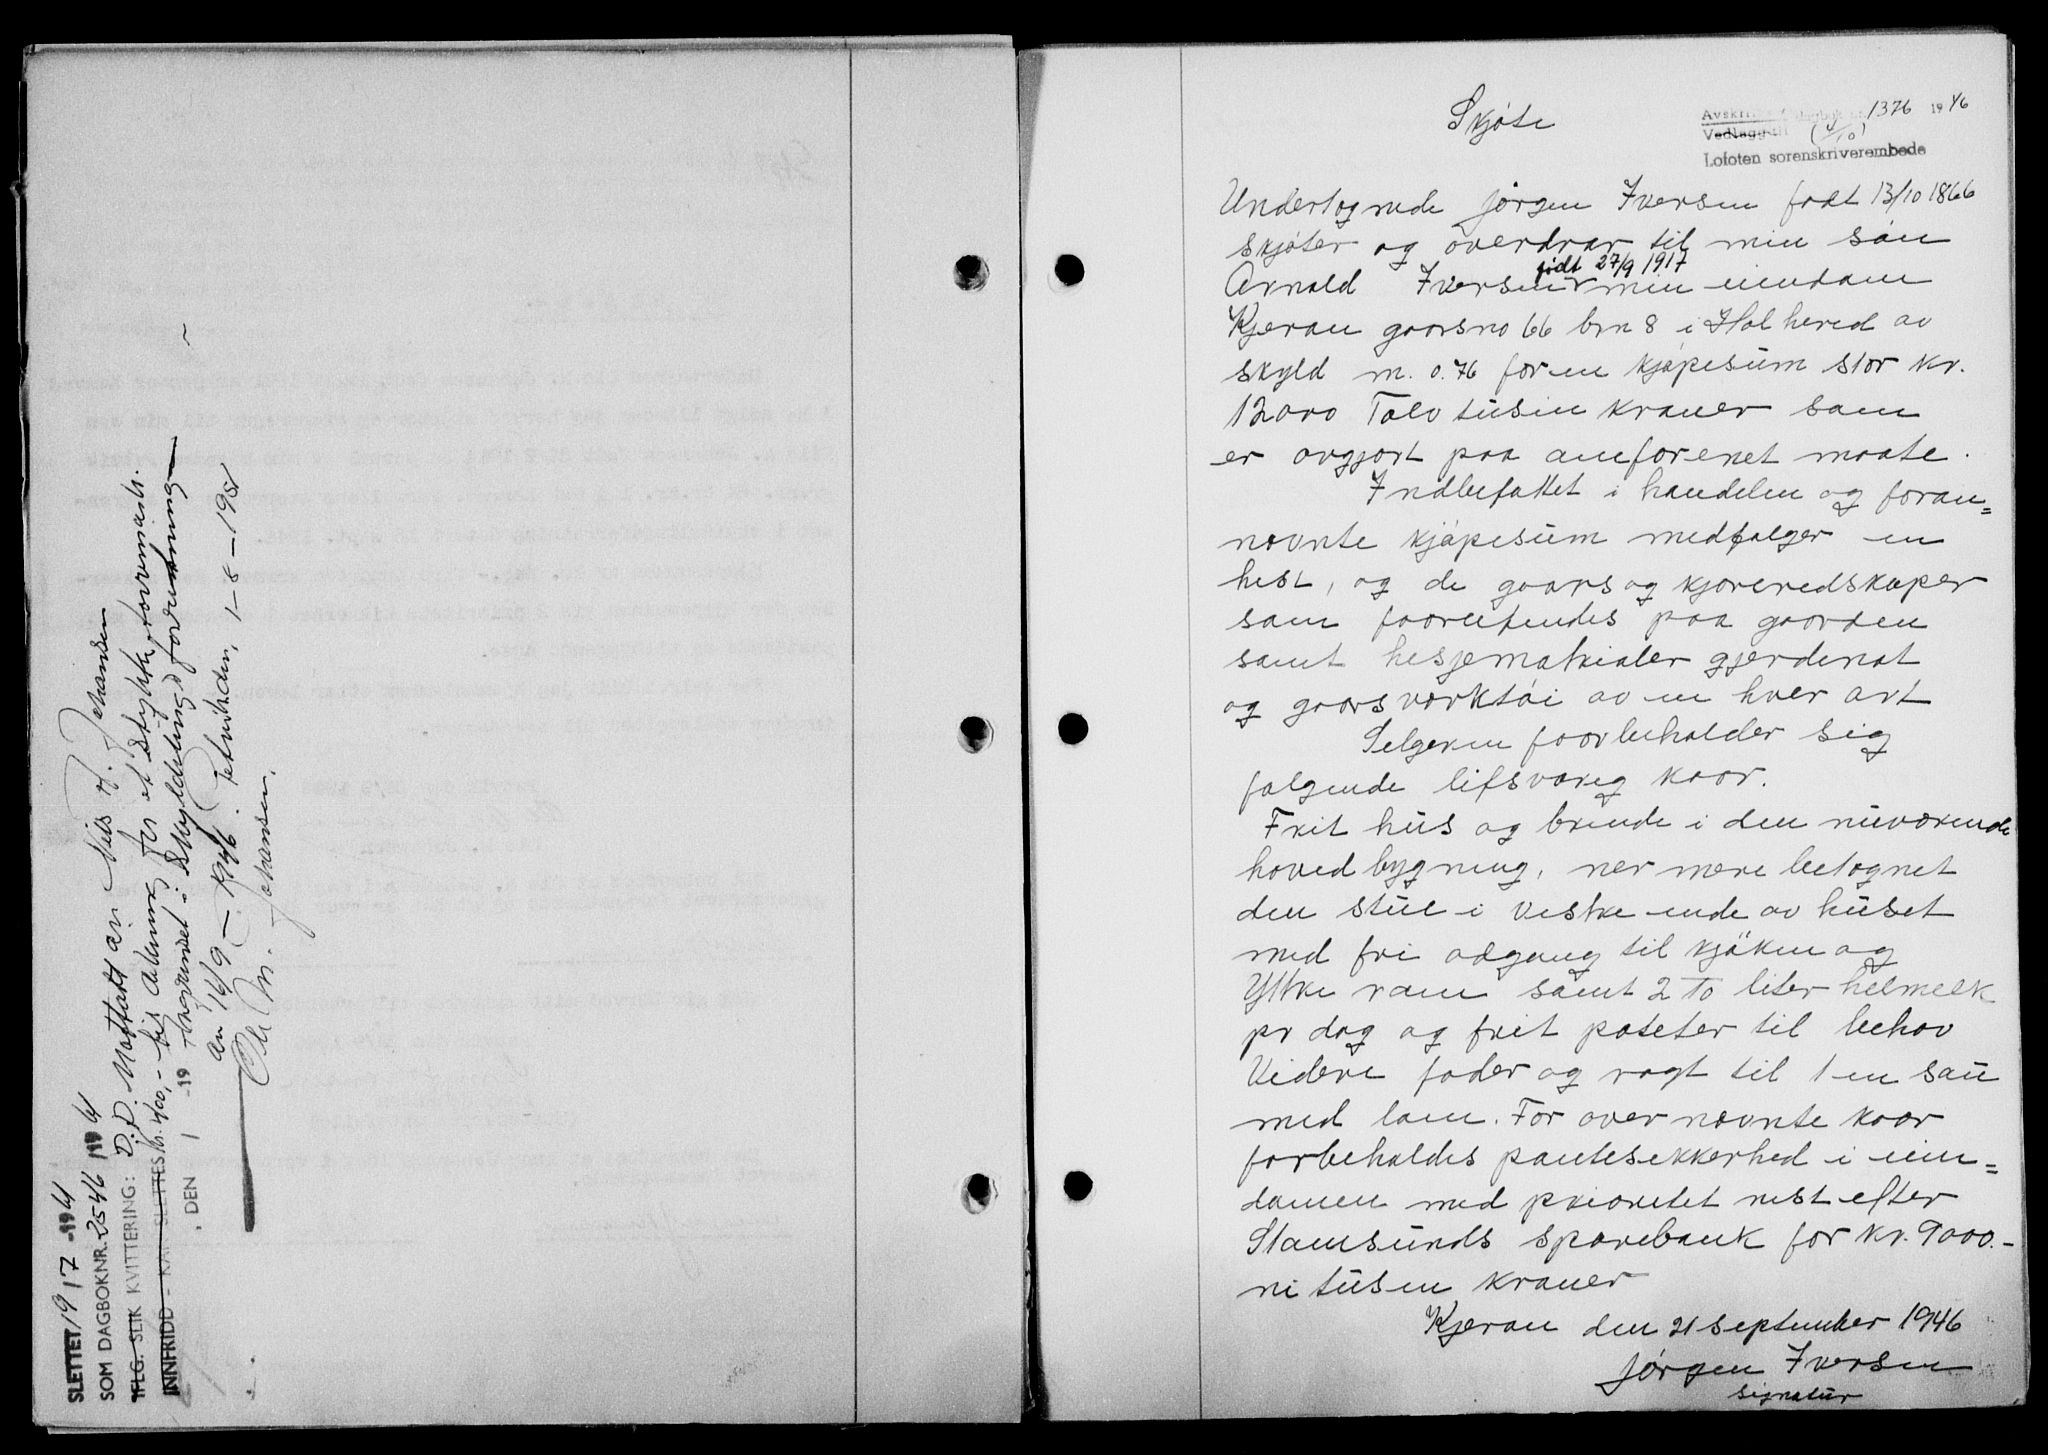 SLETTET 19/7 -1941
SOM DAGBOKNR. 2546 1941
IFLG. SLIK KVITTERING: D.D. Mottatt av Nils A. Johansen
INNFRIDD - KAN SLETTES kr. 400,- fir for et stykke torvemark
, DEN / -19 i Skyldelings forretning
av 16/9 - 1946. 1-8-1951
Ole M. Johansen.
Skjøte
Avskrift 1376 1946
Vedlegg til (4/10)
Lofoten sorenskriverembede
Undertegnede Jørgen Iversen født 13/10 1866
skjøter og overdrar til min søn
født 27/9 1917
Arnold Iversen min eiendom
Kjeran gaarsno 66 brn 8 i Hol hered av
skyld m. 0.76 for en kjøpesum stor kr.
12000 Tolv tusin kroner som
er avgjort paa omforenet maate.
Indbefattet i handelen og foran=
nevnte kjøpesum medfølger en
hest, og de gaars og kjøreredskaper
som foorefindes paa gaarden
samt hesjematrialer gjerdenot
og gaarsverktøi av en hver art
Selgeren foorbeholder sig
følgende lifsvareg kaar.
Frit hus og brende i den nuverende
hovedbygning, ner mere betegnet
den stue i vestre ende av huset
med fri adgang til kjøken og
Yttre rom samt 2 To liter helmelk
pr dag og frit poteter til behov
Videre foder og røgt til 1 en sau
med lam. For over nevnte kaar
forbeholdes pantesikkerhed i eien=
domen med prioritet nest efter
Stamsunds sparebank for kr. 9000.-
ni tusen kroner
Kjeran den 21 september 1946
Jørgen Iversen
signatur